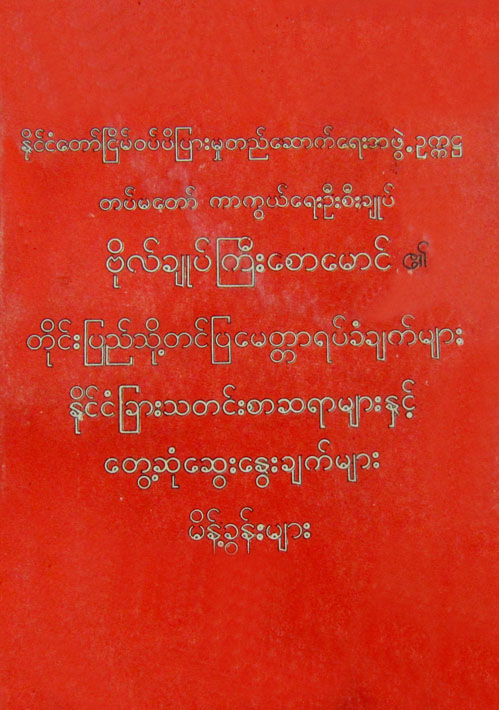 နိုင်ငံတော်ငြိမ်ဝပ်ပိပြားမှုတည်ဆောက်ရေးအဖွဲ့ဥက္ကဋ္ဌ
တပ်မတော် ကာကွယ်ရေးဦးစီးချုပ်
ဗိုလ်ချုပ်ကြီးစောမောင် ၏
တိုင်းပြည်သို့တင်ပြမေတ္တာရပ်ခံချက်များ
နိုင်ငံခြားသတင်းစာဆရာများနှင့်
တွေ့ဆုံဆွေးနွေးချက်များ
မိန့်ခွန်းများ